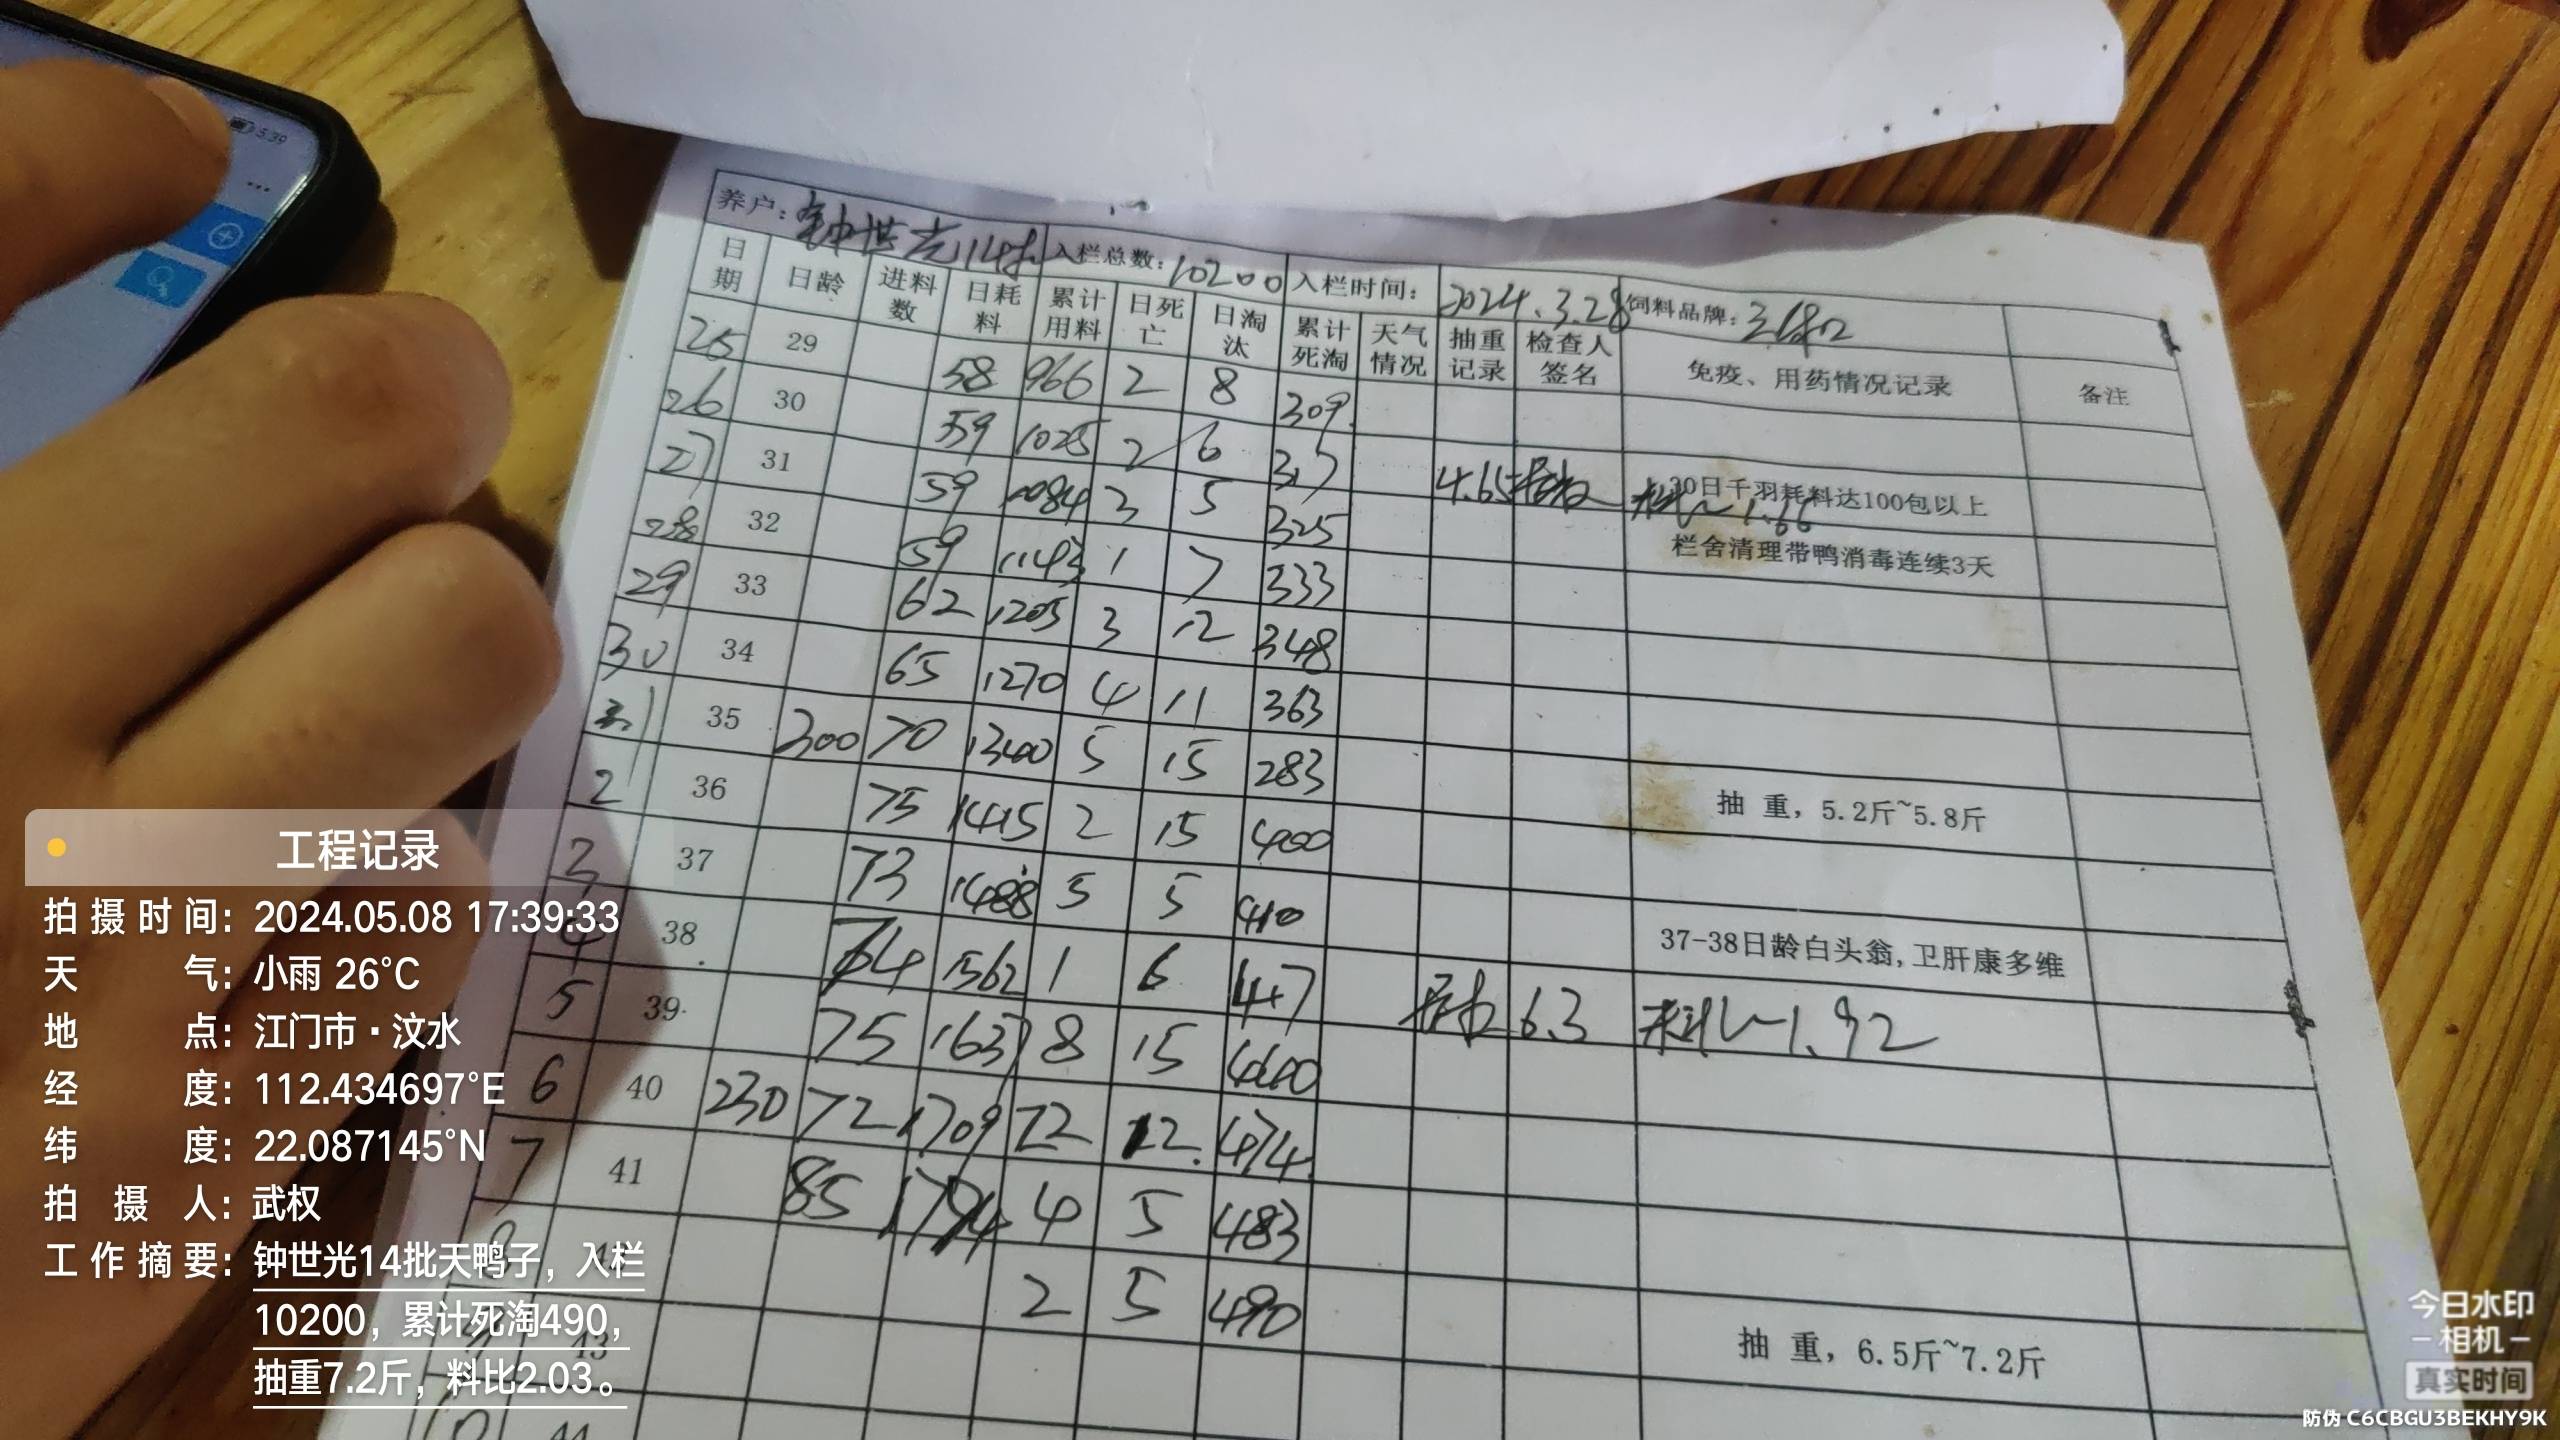 5:39
养户：钟世光14批 入栏总数：10200 入栏时间：2024.3.28 饲料品牌：
日期 日龄 进料数 日耗料 累计用料 日死亡 日淘汰 累计死淘 天气情况 抽重记录 检查人签名 免疫、用药情况记录 备注
25 29 58 966 2 8 309
26 30 59 1025 2 6 317
27 31 59 1084 3 5 325 4.65 30日千羽耗料达100包以上 料比~1.66
28 32 59 1143 1 7 333 栏舍清理带鸭消毒连续3天
29 33 62 1205 3 12 348
30 34 65 1270 4 11 363
1 35 300 70 1340 5 15 283
2 36 75 1415 2 15 400 抽 重，5.2斤~5.8斤
3 37 73 1488 5 5 410
4 38 74 1562 1 6 417 37-38日龄白头翁,卫肝康多维
5 39 75 1637 8 15 440 6.3 料比~1.92
6 40 230 72 1709 22 12 474
7 41 85 1794 4 5 483
8 2 5 490
43 抽 重，6.5斤~7.2斤
10 44
工程记录
拍摄时间：2024.05.08 17:39:33
天气：小雨 26°C
地点：江门市·汶水
经度：112.434697°E
纬度：22.087145°N
拍摄人：武权
工作摘要：钟世光14批天鸭子，入栏
10200，累计死淘490，
抽重7.2斤，料比2.03。
今日水印
相机
真实时间
防伪 C6CBGU3BEKHY9K